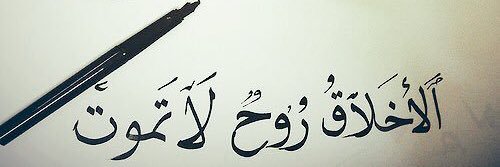 اَلأَخلَاقُ رُوحٌ لَا تَموتْ